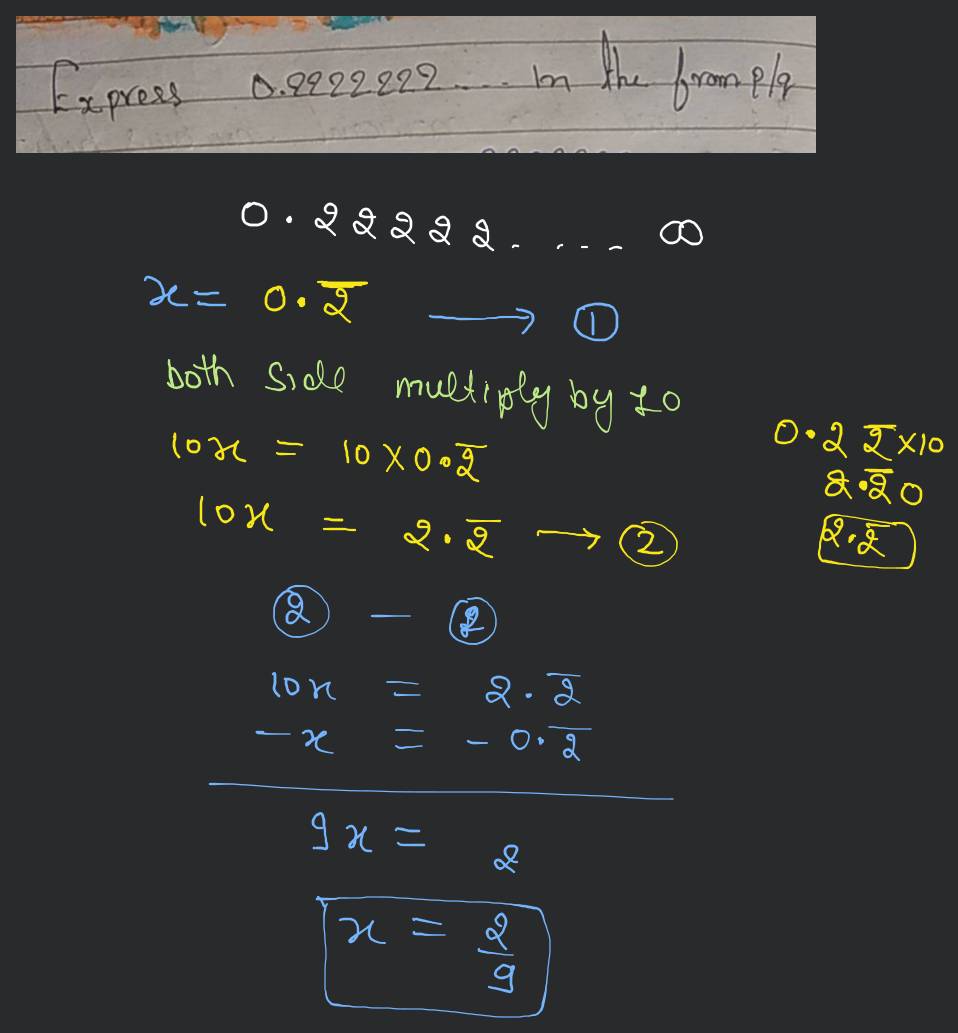 Express 0.2222222.... In the from P/q
0.22222. .... ∞
x = 0.2̅ → ①
both side multiply by 10
10x = 10 X 0.2̅
0.2 2̅ X10
2.2̅0
10x = 2.2̅ → ②
2.2̅
② - ①
10x = 2.2̅
-x = - 0.2̅
9x = 2
x = 2/9